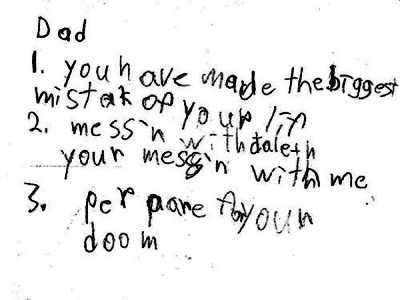 Dad
1. you have made the biggest
mistak of your lif
2. mess'n with daleth
your mess'n with me
3. per pare for your
doom